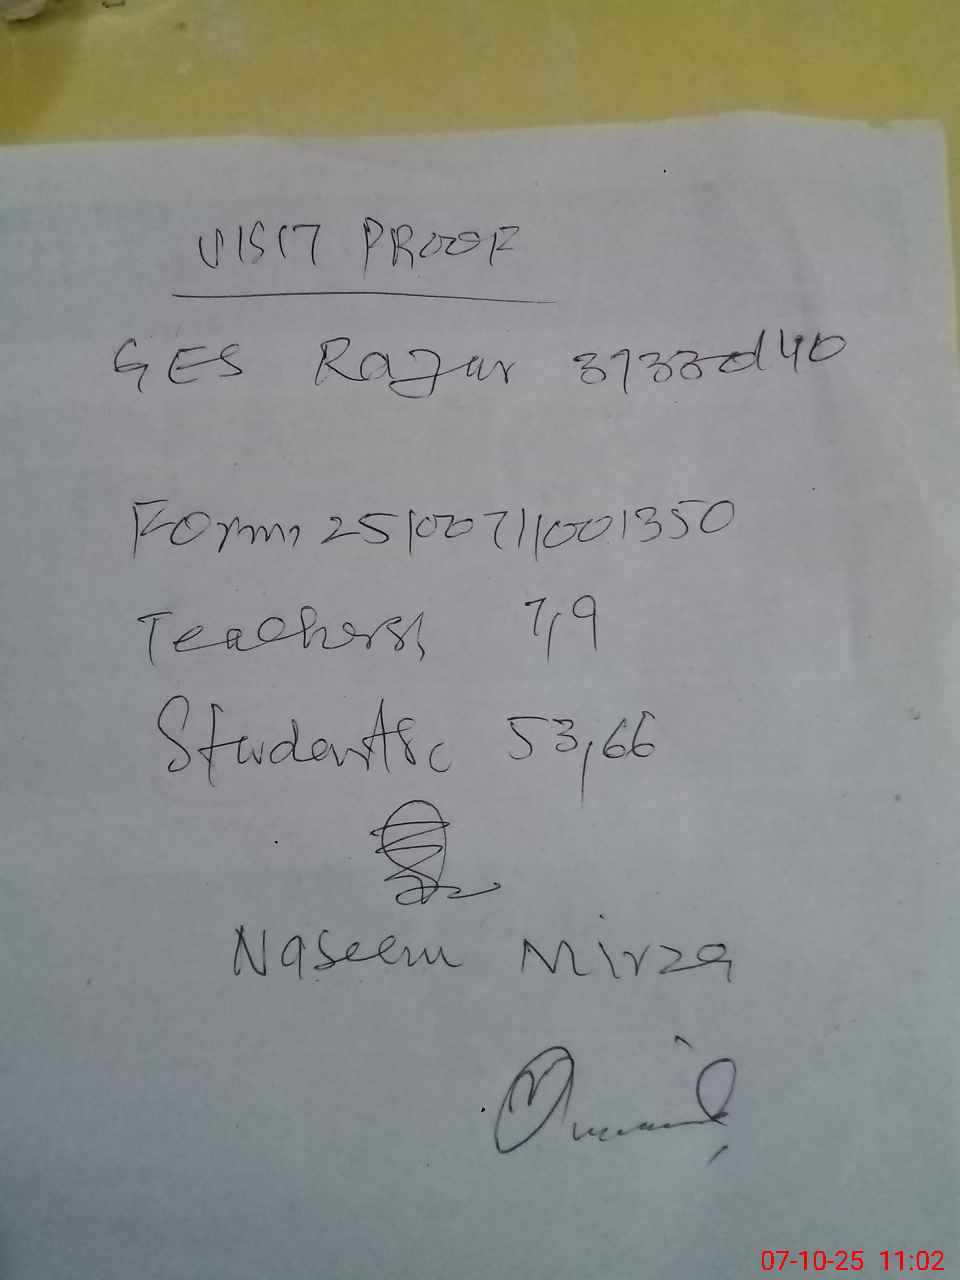 VISIT PROOF
GES Razar 37330040
Form, 251007110001350
Teachers, 7,9
Students, 53,66
Naseem Mirza
07-10-25 11:02